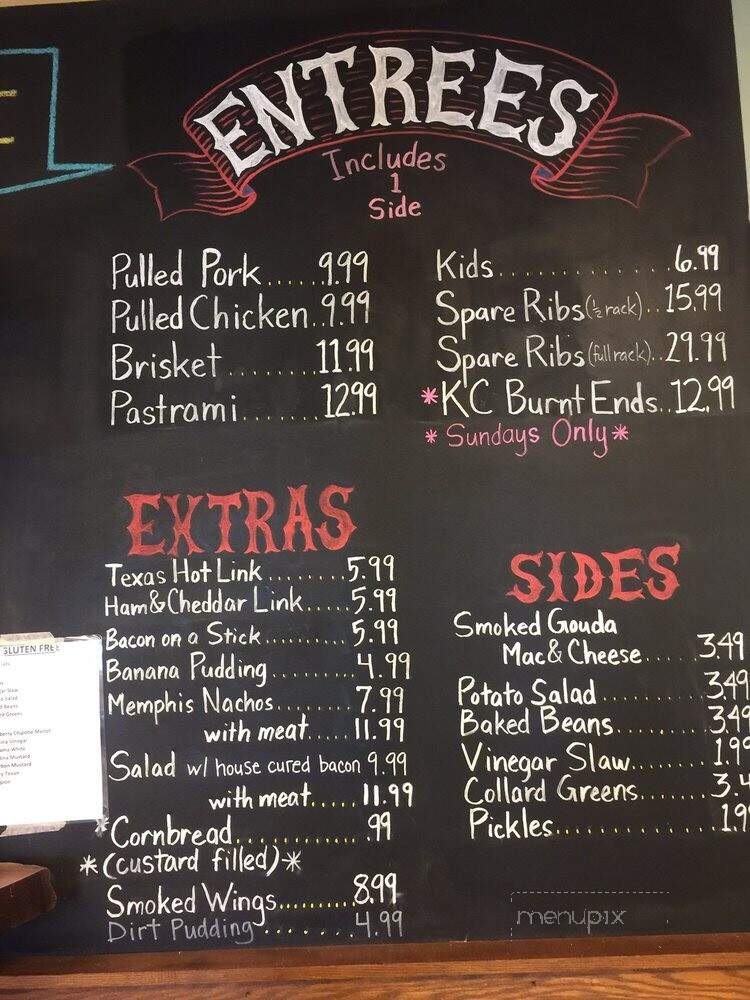 ENTREES
Includes
1
Side
Pulled Pork......9.99
Pulled Chicken..9.99
Brisket........11.99
Pastrami.......12.99
Kids..............6.99
Spare Ribs (½ rack)..15.99
Spare Ribs (full rack)..29.99
*KC Burnt Ends..12.99
* Sundays Only*
EXTRAS
Texas Hot Link........5.99
Ham&Cheddar Link.....5.99
Bacon on a Stick.......5.99
Banana Pudding........4.99
Memphis Nachos.......7.99
with meat....11.99
Salad w/ house cured bacon 9.99
with meat.....11.99
*Cornbread............99
*(custard filled)*
Smoked Wings.........8.99
Dirt Pudding.......4.99
SIDES
Smoked Gouda
Mac&Cheese.....3.49
Potato Salad.........3.49
Baked Beans........3.49
Vinegar Slaw.......1.99
Collard Greens.......3.4
Pickles............1.9
GLUTEN FREE
menupix